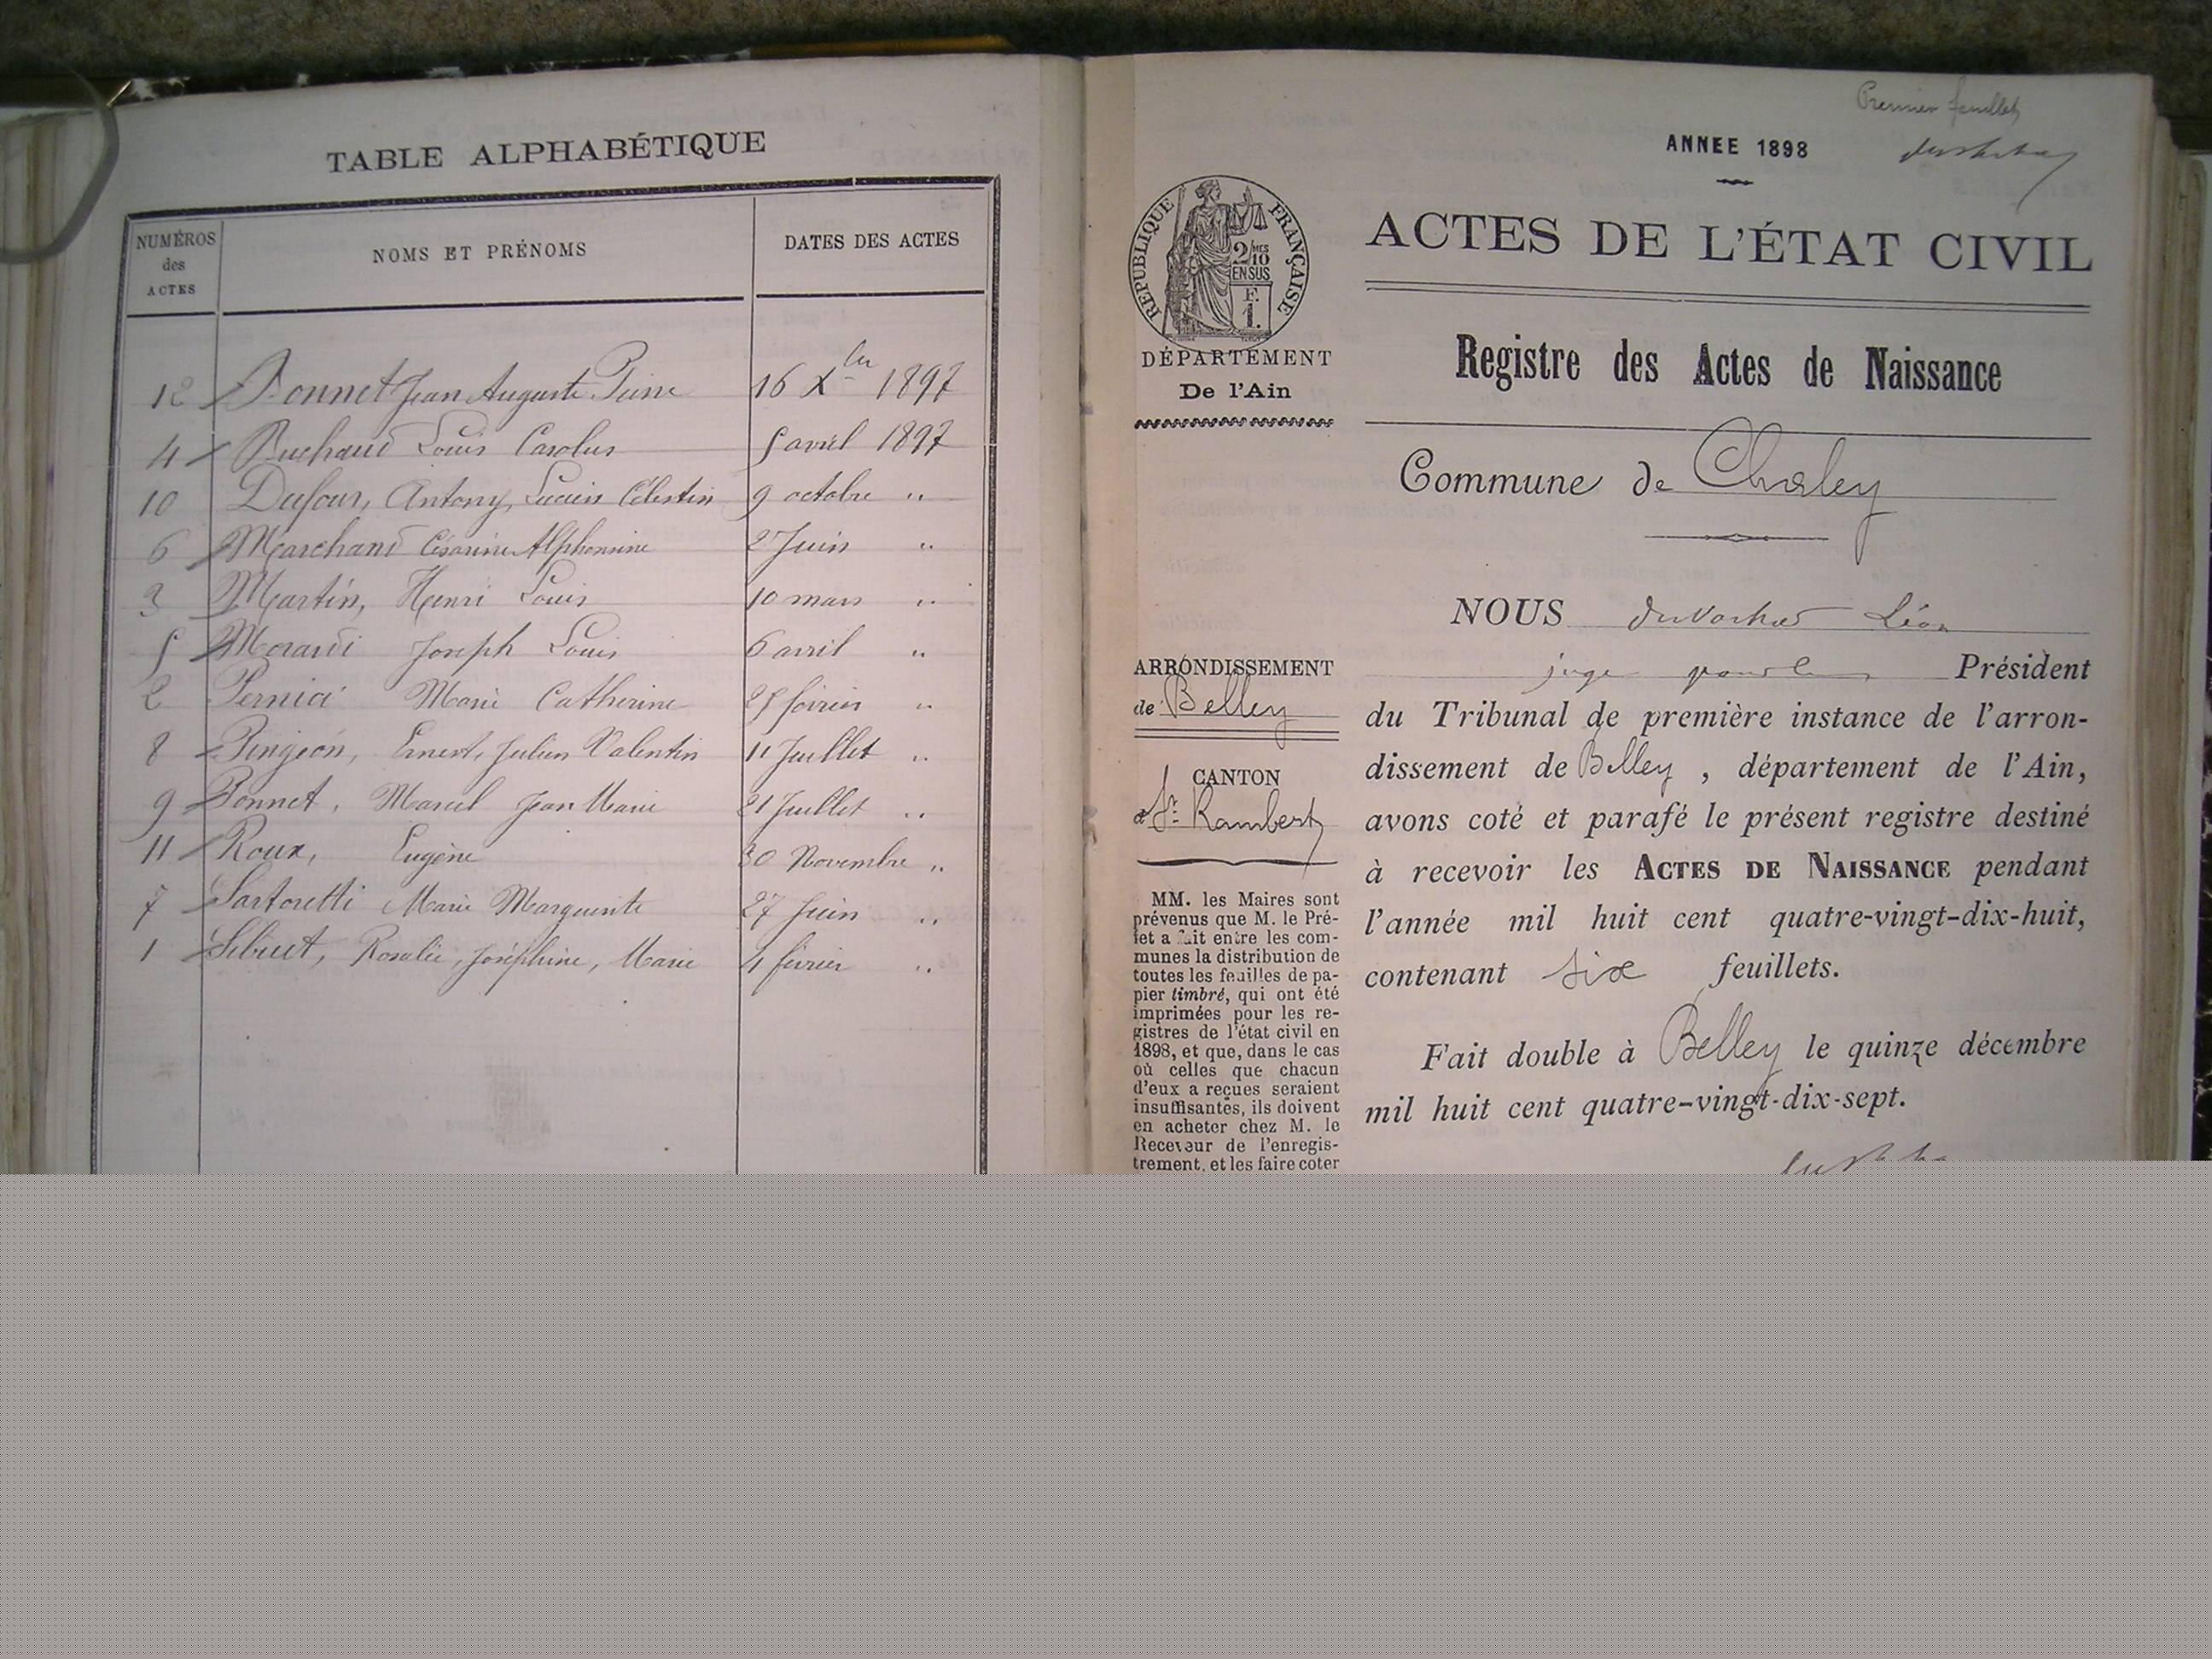 TABLE ALPHABÉTIQUE
NUMÉROS
des
ACTES
NOMS ET PRÉNOMS
DATES DES ACTES
12 Bonnet Jean Auguste 16 Xbre 1897
4 Buchaud Louis Carolus 5 avril 1897
10 Dufour, Antony, Lucien Célestin 9 octobre "
6 Marchand Césarine Alphonsine 2 Juin "
3 Martin, Henri Louis 10 mars "
5 Morardi Joseph Louis 6 avril "
2 Pernici Marie Catherine 25 février "
8 Pingeon, Ernest, Julien Valentin 11 Juillet "
9 Ponnet, Marcel Jean Marie 21 Juillet "
11 Roux, Eugène 30 Novembre "
7 Sartoretti Marie Marguerite 27 Juin "
1 Sibuet, Rosalie, Joséphine, Marie 4 février "
Premier feuillet
ANNEE 1898
RÉPUBLIQUE FRANÇAISE
2/MES
10
EN SUS
F.
1.
DÉPARTEMENT
De l'Ain
ARRONDISSEMENT
de Belley
CANTON
de St Rambert
MM. les Maires sont
prévenus que M. le Pré-
fet a fait entre les com-
munes la distribution de
toutes les feuilles de pa-
pier timbré, qui ont été
imprimées pour les re-
gistres de l'état civil en
1898, et que, dans le cas
où celles que chacun
d'eux a reçues seraient
insuffisantes, ils doivent
en acheter chez M. le
Receveur de l'enregis-
trement, et les faire coter
ACTES DE L'ÉTAT CIVIL
Registre des Actes de Naissance
Commune de Chaley
NOUS Léon
juge Président
du Tribunal de première instance de l'arron-
dissement de Belley, département de l'Ain,
avons coté et parafé le présent registre destiné
à recevoir les ACTES DE NAISSANCE pendant
l'année mil huit cent quatre-vingt-dix-huit,
contenant six feuillets.
Fait double à Belley le quinze décembre
mil huit cent quatre-vingt-dix-sept.